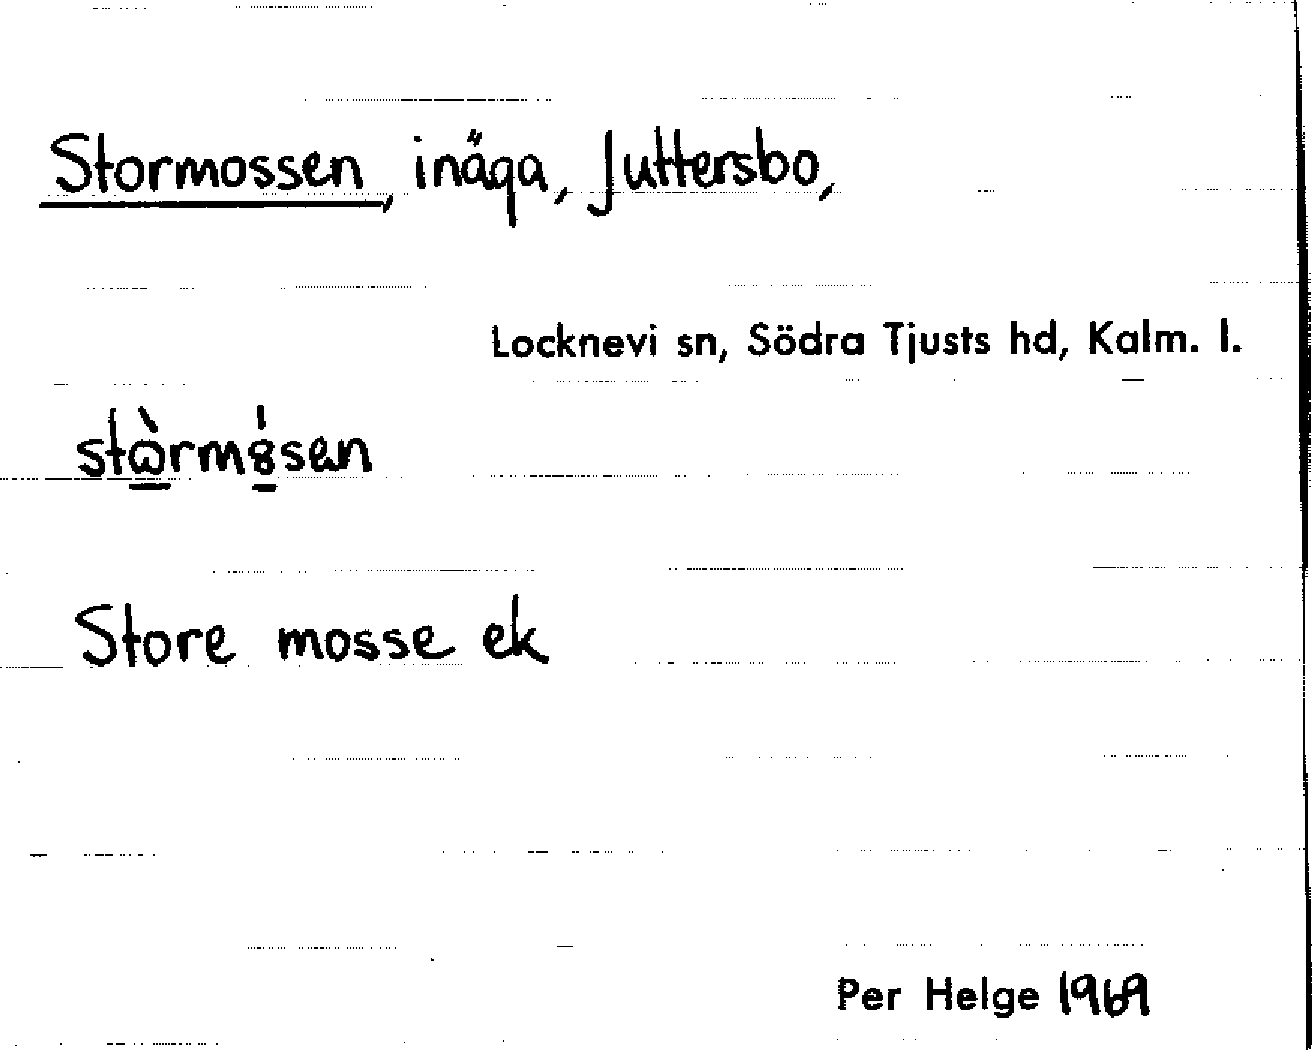 Stormossen, inäga, Juttersbo,
Locknevi sn, Södra Tjusts hd, Kalm. l.
Store mosse ek
Per Helge 1969